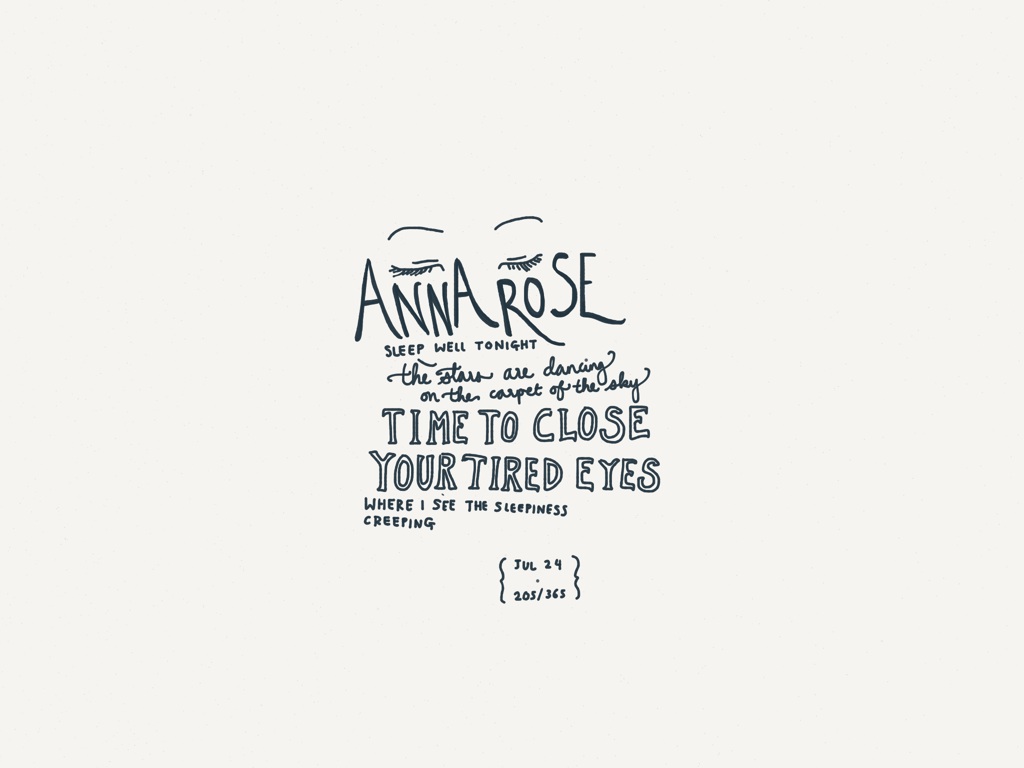 ANNA ROSE
SLEEP WELL TONIGHT
the stars are dancing
on the carpet of the sky
TIME TO CLOSE
YOUR TIRED EYES
WHERE I SEE THE SLEEPINESS
CREEPING
{ JUL 24 }
205/365